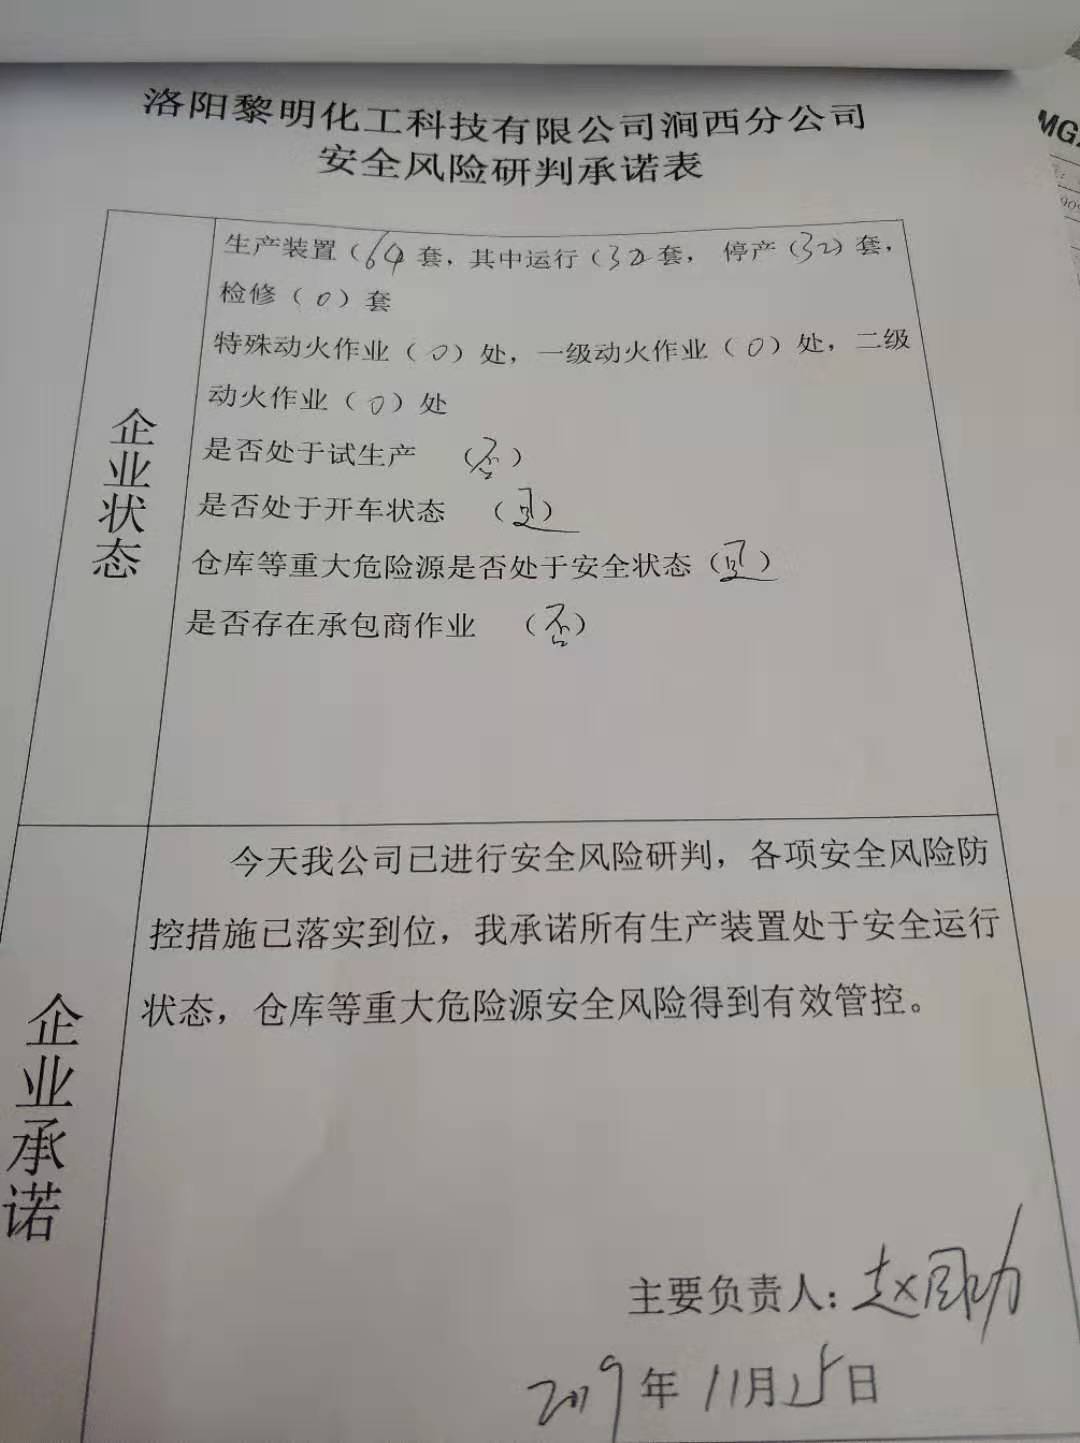 洛阳黎明化工科技有限公司涧西分公司
安全风险研判承诺表
MG
企业状态
生产装置（64）套，其中运行（32）套， 停产（32）套，
检修（0）套
特殊动火作业（0）处，一级动火作业（0）处，二级
动火作业（0）处
是否处于试生产 （否）
是否处于开车状态 （是）
仓库等重大危险源是否处于安全状态（是）
是否存在承包商作业 （否）
企业承诺
今天我公司已进行安全风险研判，各项安全风险防
控措施已落实到位，我承诺所有生产装置处于安全运行
状态，仓库等重大危险源安全风险得到有效管控。
主要负责人：赵国功
2019年11月25日